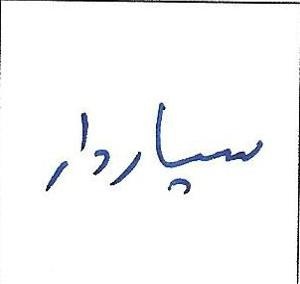 سپاردار